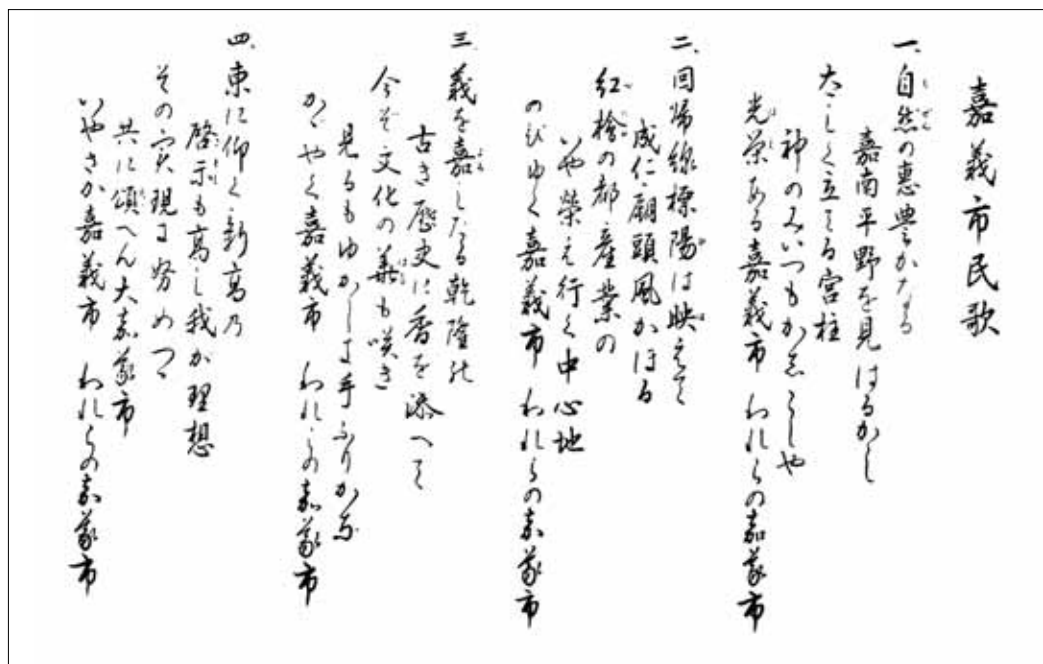 嘉義市民歌
一、自然の惠豊かなる
嘉南平野を見はるかし
太しく立てる宮柱
神のみいつもかしこしや
光栄ある嘉義市 われらの嘉義市
二、回帰線標陽は映えて
成仁廟頭風かほる
紅檜の都産業の
いや榮え行く中心地
のびゆく嘉義市 われらの嘉義市
三、義を嘉したる乾隆の
古き歴史に香を添へて
今ぞ文化の華も咲き
見るもゆかしき手ふりかな
かゞやく嘉義市 われらの嘉義市
四、東に仰く新高乃
啓示も高し我か理想
その実現に努めつゝ
共に頌へん大嘉義市
いやさか嘉義市 われらの嘉義市